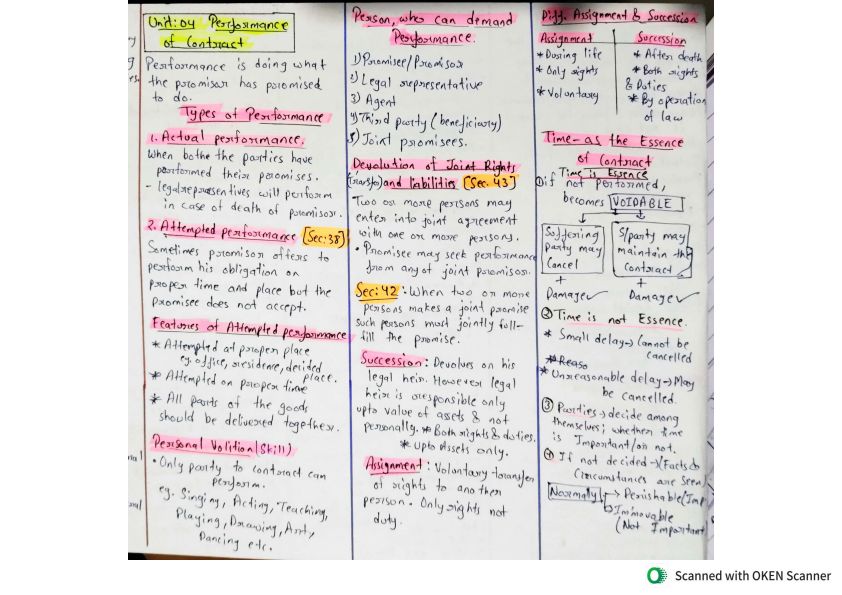 Unit: 04 Performance
of Contract
Performance is doing what
the promisor has promised
to do.
Types of Performance
1. Actual performance:
When bothe the parties have
performed their promises.
- legal representives will perform
in case of death of promisor.
2. Attempted performance [Sec:38]
Sometimes promisor offers to
perform his obligation on
proper time and place but the
promisee does not accept.
Features of Attempted performance
* Attempted at proper place
eg. office, residence, decided
place.
* Attempted on proper time
* All parts of the goods
should be delivered together.
Personal Volition (Skill)
• Only party to contract can
perform.
eg. Singing, Acting, Teaching,
Playing, Drawing, Art,
Dancing etc.
Person, who can demand
Performance.
1) Promisee/Promisor
2) Legal representative
3) Agent
4) Third party (beneficiary)
5) Joint promisees.
Devolution of Joint Rights
(Transfer) and liabilities [Sec. 43]
• Two or more persons may
enter into joint agreement
with one or more persons.
• Promisee may seek performance
from any of joint promisor.
Sec: 42 : When two or more
persons makes a joint promise
such persons must jointly full-
fill the promise.
Succession : Devolves on his
legal heir. However legal
heir is responsible only
upto value of assets & not
personally. * Both rights & duties.
* Upto Assets only.
Assignment : Voluntary transfer
of rights to another
person. Only rights not
duty.
Diff. Assignment & Succession
Assignment
* During life
* Only rights
* Voluntary
Succession
* After death
* Both rights
& Duties
* By operation
of law
Time - as the Essence
of Contract
① Time is Essence
if not performed,
becomes VOIDABLE
Suffering
party may
Cancel
+
Damage ✓
S/party may
maintain the
contract
+
Damage ✓
② Time is not Essence.
* Small delay → Cannot be
cancelled
* Reaso
* Unreasonable delay → May
be cancelled.
③ Parties → decide among
themselves; whether time
is Important/or not.
④ If not decided → (Facts &
Circumstances are seen)
Normally → Perishable (Imp
→ Immovable
(Not Important
Scanned with OKEN Scanner